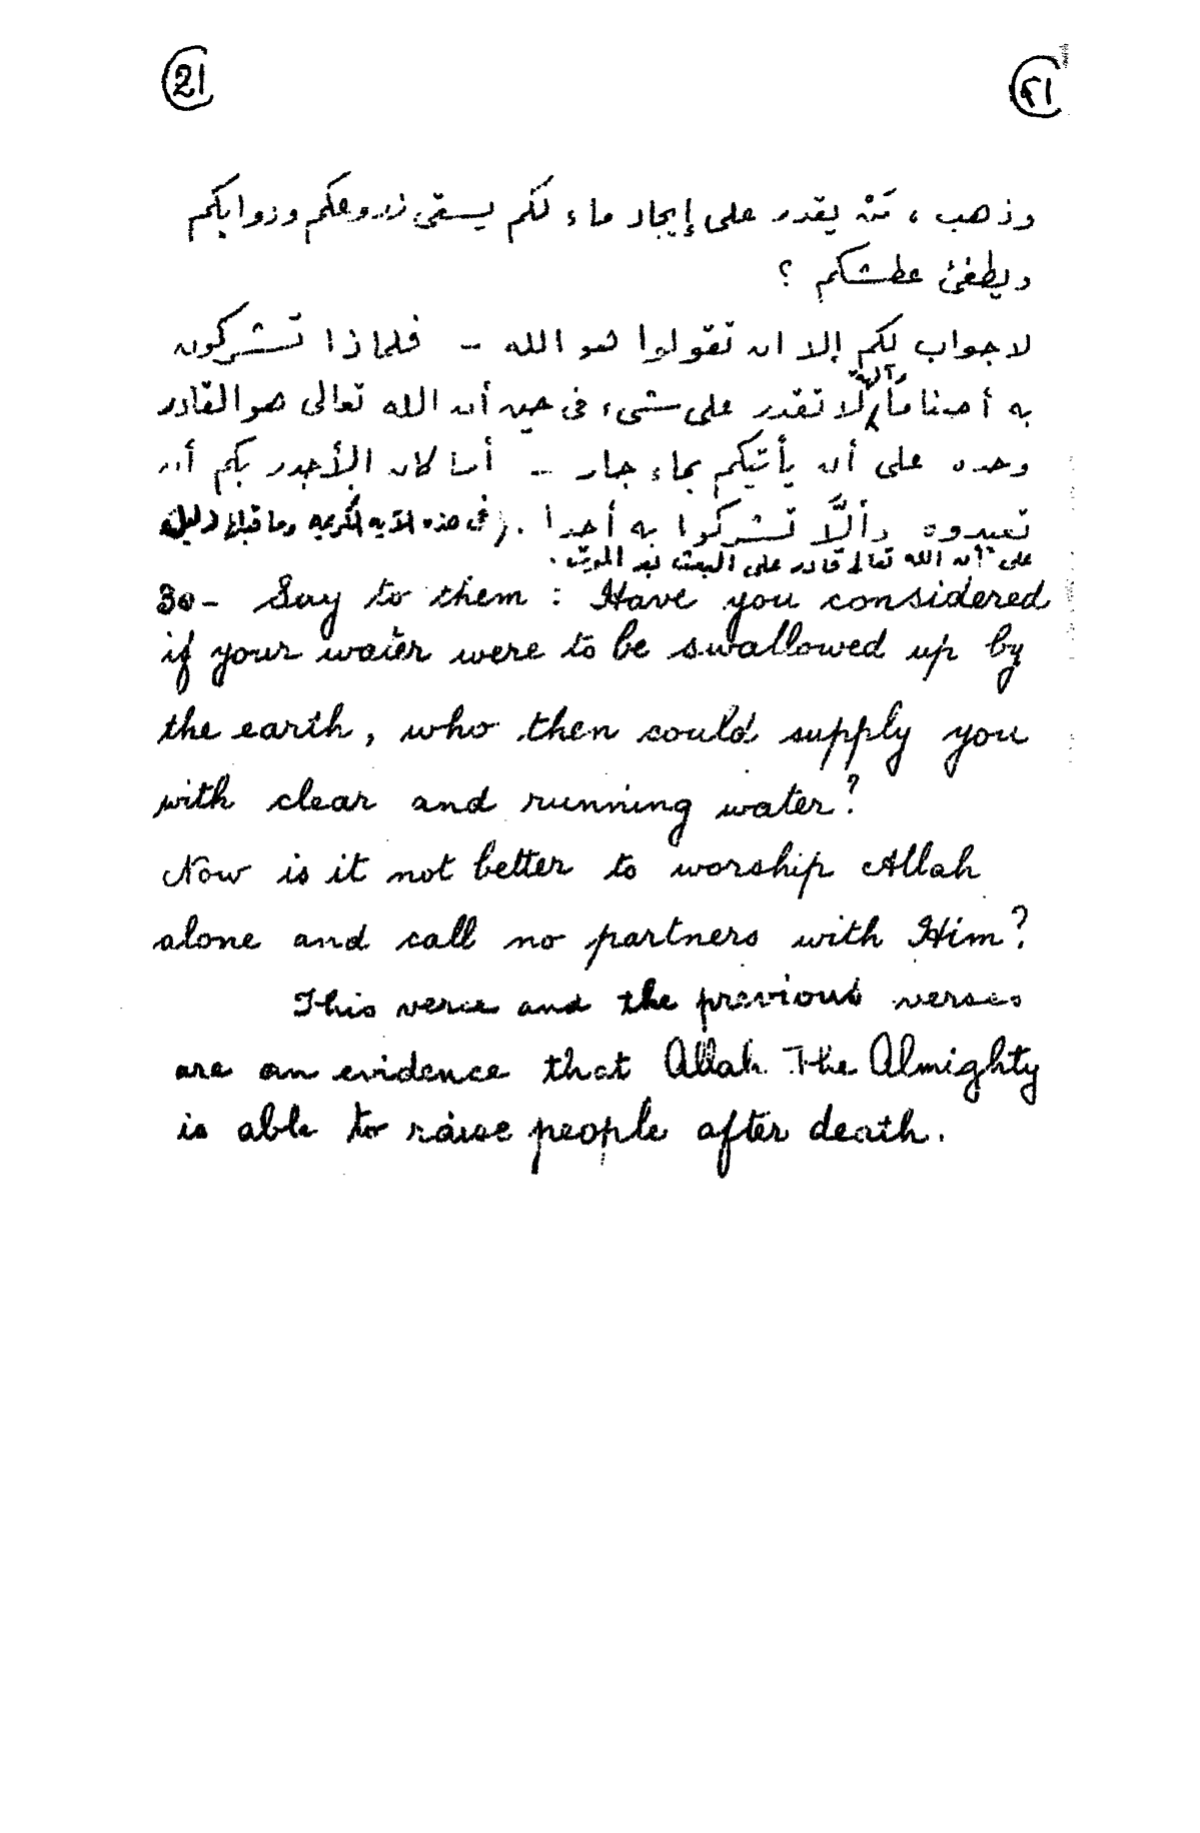 21 ٢١
وذهب ، مَنْ يقدر على إيجاد ماء لكم يسقى زروعكم ودوابكم
ويطفئ عطشكم ؟
لا جواب لكم إلا ان تقولوا هو الله - فلماذا تشركون
به أصناماً وآلهة لا تقدر على شىء فى حين أن الله تعالى هو القادر
وحده على أن يأتيكم بماء جار - أما كان الأجدر بكم أن
تعبدوه وألاَّ تشركوا به أحدا . فى هذه الآيه الكريمه وما قبلها دليل
على أن الله تعالى قادر على البعث بعد الموت .
30- Say to them : Have you considered
if your water were to be swallowed up by
the earth, who then could supply you
with clear and running water?
Now is it not better to worship Allah
alone and call no partners with Him?
This verse and the previous verses
are an evidence that Allah The Almighty
is able to raise people after death.